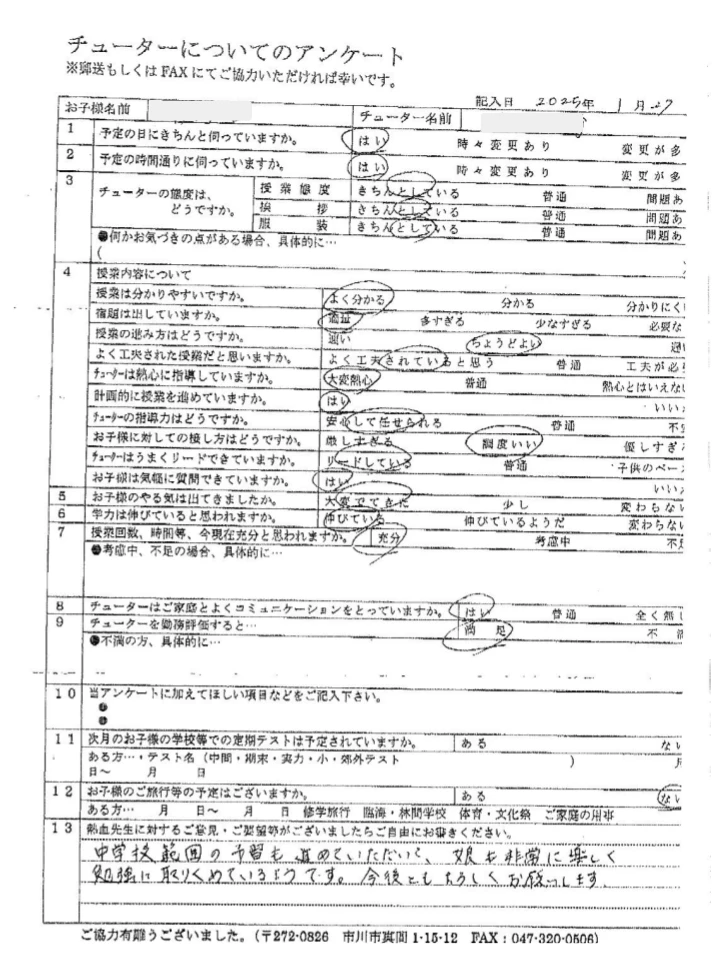 チューターについてのアンケート
※郵送もしくは FAX にてご協力いただければ幸いです。
記入日 2025年 1月27
お子様名前 チューター名前
1 予定の日にきちんと伺っていますか。 はい 時々変更あり 変更が多
2 予定の時間通りに伺っていますか。 はい 時々変更あり 変更が多
3 チューターの態度は、どうですか。 授業態度 きちんとしている 普通 問題あ
挨拶 きちんとしている 普通 問題あ
服装 きちんとしている 普通 問題あ
●何かお気づきの点がある場合、具体的に…
(
4 授業内容について
授業は分かりやすいですか。 よく分かる 分かる 分かりにく
宿題は出していますか。 適量 多すぎる 少なすぎる 必要な
授業の進み方はどうですか。 遅い ちょうどよい 速
よく工夫された授業だと思いますか。 よく工夫されていると思う 普通 工夫が必
チューターは熱心に指導していますか。 大変熱心 普通 熱心とはいえな
計画的に授業を進めていますか。 はい いい
チューターの指導力はどうですか。 安心して任せられる 普通 不
お子様に対しての接し方はどうですか。 厳しすぎる 調度いい 優しすぎ
チューターはうまくリードできていますか。 リードしている 普通 子供のペー
お子様は気軽に質問できていますか。 はい いい
5 お子様のやる気は出てきましたか。 大変でてきた 少し 変わらな
6 学力は伸びていると思われますか。 伸びている 伸びているようだ 変わらな
7 授業回数、時間等、今現在充分と思われますか。 充分 考慮中 不
●考慮中、不足の場合、具体的に…
8 チューターはご家庭とよくコミュニケーションをとっていますか。 はい 普通 全く無
9 チューターを勤務評価すると… 満足 不満
●不満の方、具体的に…
10 当アンケートに加えてほしい項目などをご記入下さい。
●
●
11 次月のお子様の学校等での定期テストは予定されていますか。 ある ない
ある方…・テスト名（中間・期末・実力・小・郊外テスト ） 月
日～ 月 日
12 お子様のご旅行等の予定はございますか。 ある ない
ある方… 月 日～ 月 日 修学旅行 臨海・林間学校 体育・文化祭 ご家庭の用事
13 熱血先生に対するご意見・ご要望等がございましたらご自由にお書きください。
中学校範囲の予習も進めていただいて、娘も非常に楽しく
勉強に取りくめているようです。今後ともよろしくお願いします
ご協力有難うございました。（〒272-0826 市川市真間 1-15-12 FAX：047-320-0506）